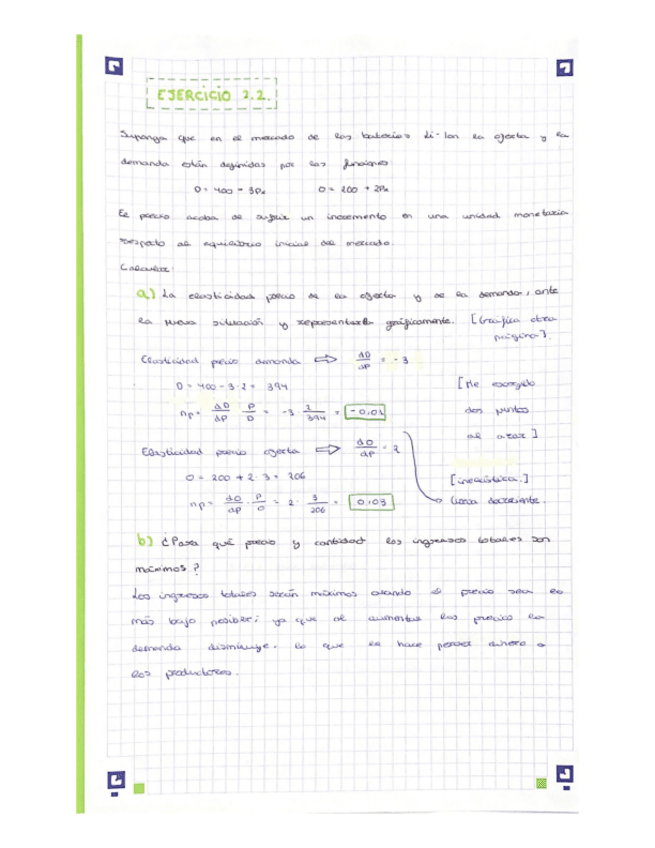 EJERCICIO 2.2.
Suponga que en el mercado de las baterías Li-Ion la oferta y la
demanda están definidas por las funciones:
D = 400 - 3Px O = 200 + 2Px
El precio acaba de sufrir un incremento en una unidad monetaria
respecto al equilibrio inicial del mercado.
Calcular:
a) La elasticidad precio de la oferta y de la demanda, ante
la nueva situación y represéntarla gráficamente. [Gráfica otra
página].
Elasticidad precio demanda ⇒ dD/dP = -3
D = 400 - 3·2 = 394 [He escogido
np = dD/dP · P/D = -3 · 2/394 = -0,01 dos puntos
al azar]
Elasticidad precio oferta ⇒ dO/dP = 2
O = 200 + 2·3 = 206 [inelástica.]
np = dO/dP · P/O = 2 · 3/206 = 0,03 línea decreciente.
b) ¿Para qué precio y cantidad los ingresos totales son
máximos?
Los ingresos totales serán máximos cuando el precio sea lo
más bajo posible; ya que al aumentar los precios la
demanda disminuye, lo que le hace perder dinero a
los productores.